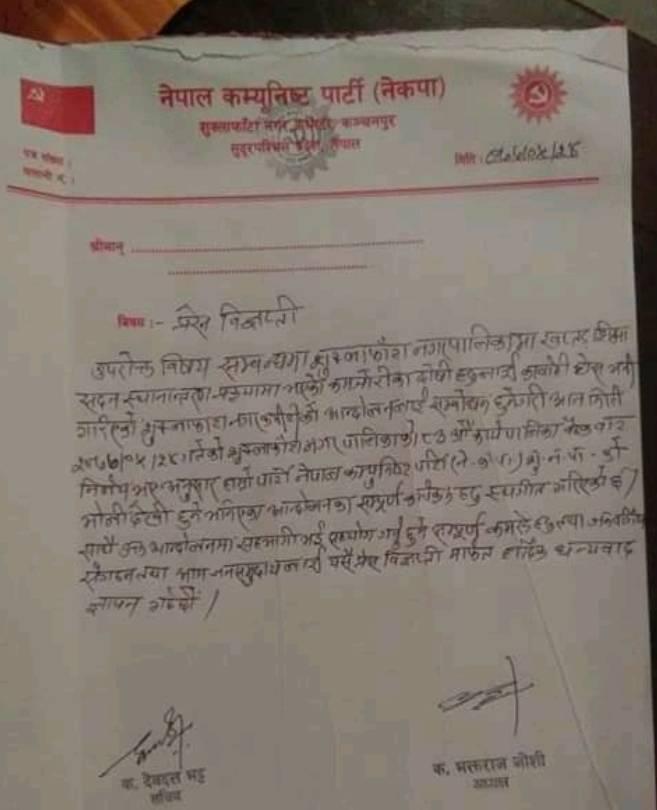 नेपाल कम्यूनिष्ट पार्टी (नेकपा)
शुक्लाफाँटा नगर कञ्चनपुर
सुदूरपश्चिम प्रदेश, नेपाल
पत्र संख्या :
चलानी नं. :
मिति :
श्रीमान्
विषय :- प्रेस विज्ञप्ती
उपरोक्त विषय सम्बन्धमा शुक्लाफाँटा नगरपालिकामा
सदन स्थानान्तरण भएको कमजोरीका दोषी हरुलाई कार्वाही होस भनी
गरिएको शुक्लाफाँटा आन्दोलनलाई सम्बोधन हुनेगरी आज मिति
गतेको शुक्लाफाँटा नगर पालिकाको ८३ औं कार्यपालिका बैठक बाट
निर्णय भए अनुसार हाम्रो पार्टी नेपाल कम्युनिष्ट पार्टी (ने.क.पा.) को
भोली देखी हुने भनिएका आन्दोलनका सम्पूर्ण कार्यक्रम हरु स्थगीत गरिएको छ /
साथै उक्त आन्दोलनमा सहभागी भई सहयोग गर्नु हुने सम्पूर्ण कमरेड हरु तथा
संगठन तथा आम जनसमुदायलाई यसै प्रेस विज्ञप्ती मार्फत हार्दिक धन्यवाद
ज्ञापन गर्दछौं /
क. देवदत्त भट्ट
सचिव
क. भक्तराज जोशी
अध्यक्ष